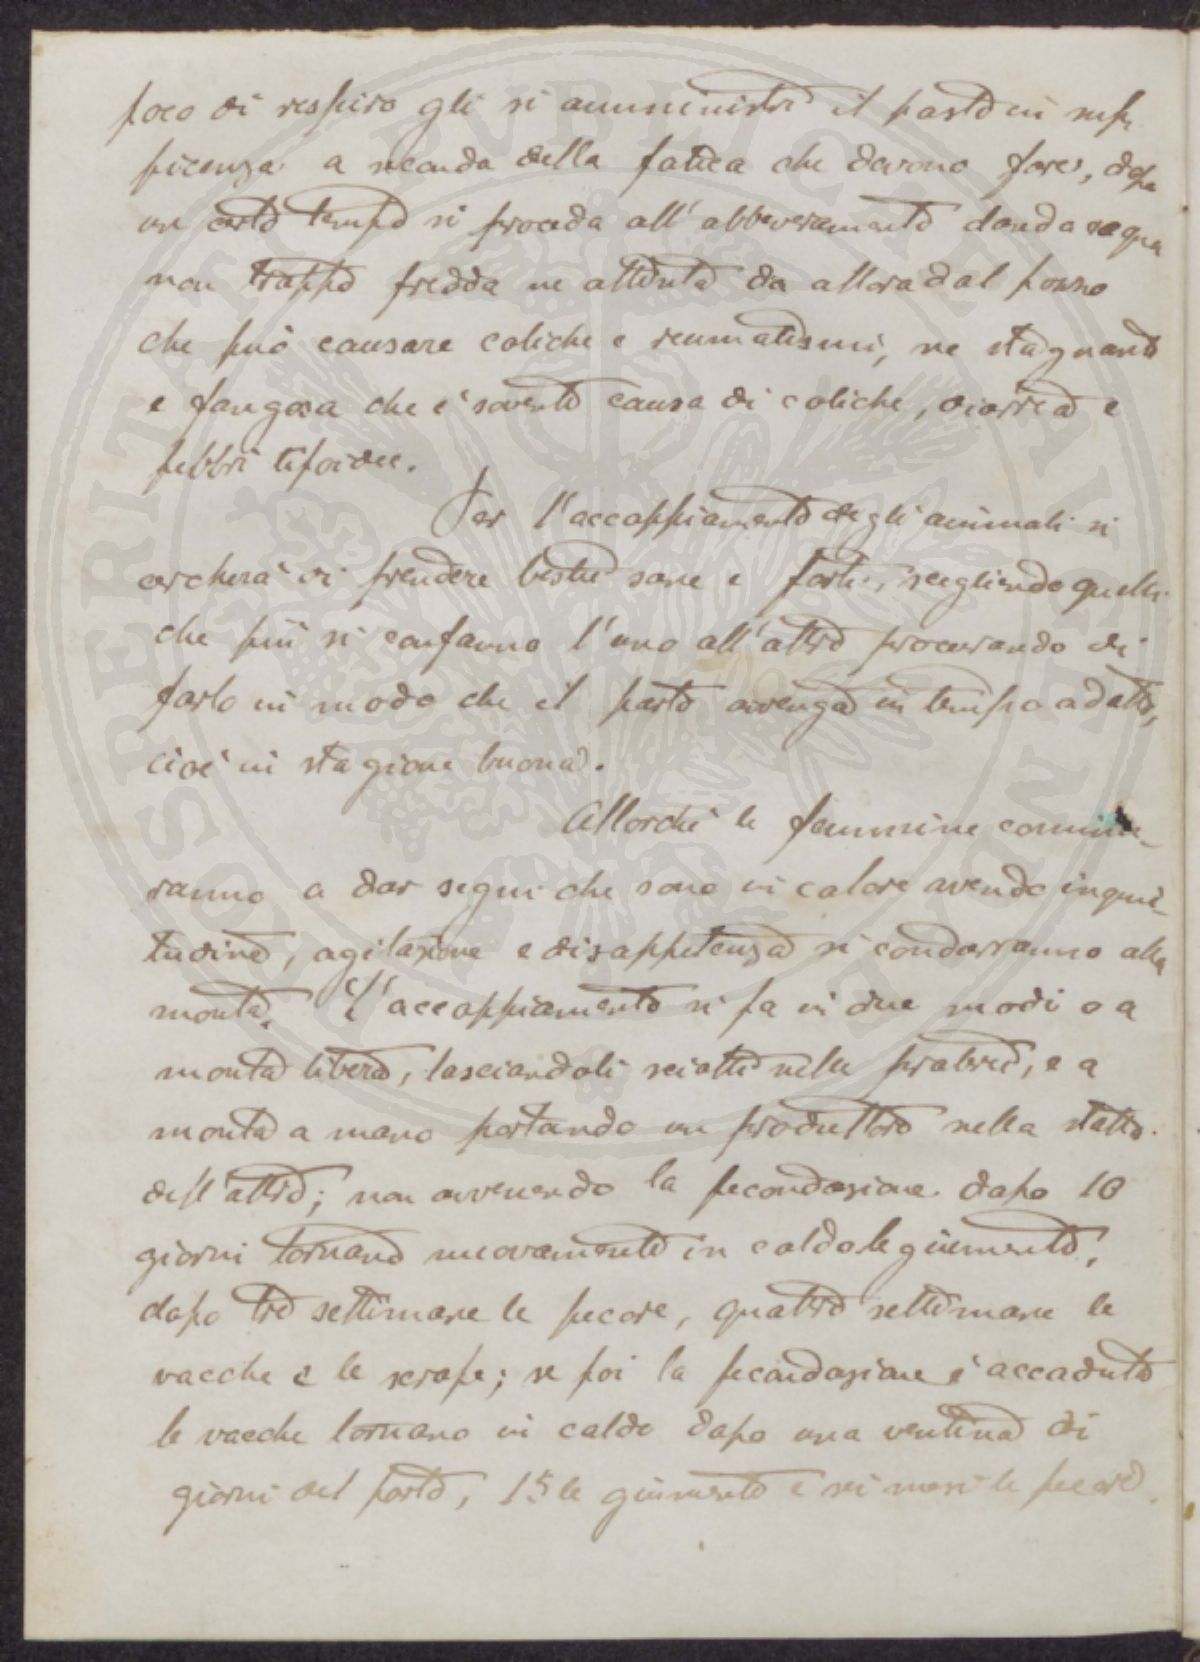 poco di respiro gli si amministri il pasto in suf-
ficenza a seconda della fatica che devono fare, dopo
un certo tempo si proceda all'abbeveramento dando acqua
non troppo fredda ne attinta da allora dal pozzo
che può causare coliche e reumatismi, ne stagnante
e fangosa che è sovente causa di coliche, diarrea e
febbri tifoidee.
Per l'accoppiamento degli animali si
cercherà di prendere bestie sane e forti, scegliendo quelli
che più si confanno l'uno all'altro procurando di
farlo in modo che il parto avvenga in tempo adatto,
cioè in stagione buona.
Allorchè le femmine comince-
ranno a dar segni che sono in calore avendo inquie-
tudine, agitazione e disappetenza si condurranno alla
monta. L'accoppiamento si fa in due modi o a
monta libera, lasciandoli sciolti nelle praterie, e a
monta a mano portando un produttore nella stalla
dell'altro; non avvenendo la fecondazione dopo 10
giorni tornano nuovamente in caldo le giumente,
dopo tre settimane le pecore, quattro settimane le
vacche e le scrofe; se poi la fecondazione è accaduta
le vacche tornano in caldo dopo una ventina di
giorni del parto, 15 le giumente e sei mesi le pecore.
SOSPERITATI PVBLICAE AVGENDAE